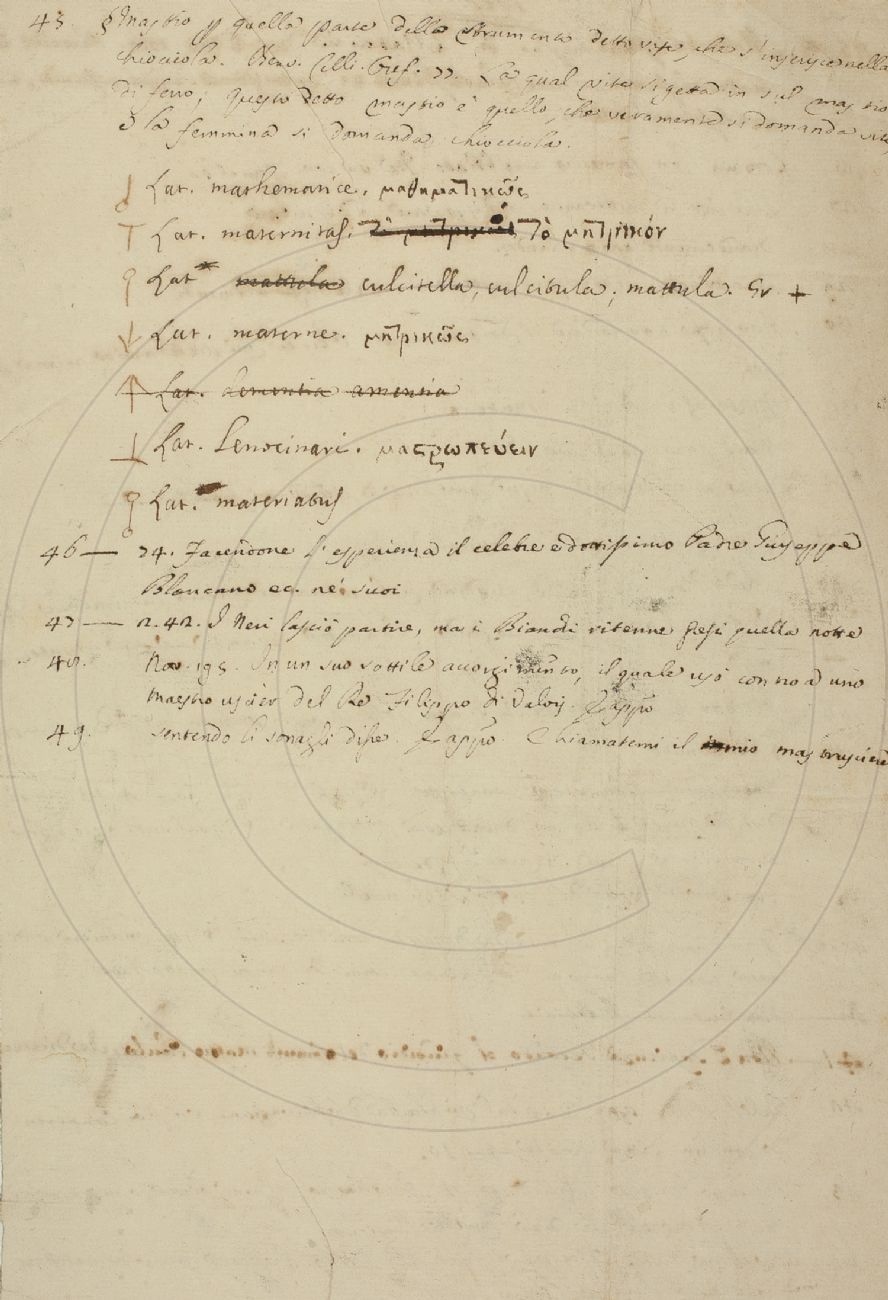 45. § Mastio p quella parte dello strumento detto vite, che s'inserisce nella
chiocciola. Benv. Cell. Oref. 77. La qual vite si getta in sul mastio
di ferro; questo detto mastio è quello, che veramente si domanda vite,
e la femmina si domanda chiocciola.
Lat. mathematice. μαθηματικῶς
Lat. maternitas. τὸ μητρικὸν τὸ μητρικόν
Lat. mattula culcitella, culcitula; mattula. Gr. +
Lat. materne. μητρικῶς
Lat. dementia amentia
Lat. Lenocinari. μαστρωπεύειν
Lat. materiatus
46 — 74. Facendone l'esperienza il celebre e dottissimo Padre Giuseppe
Blancano ec. ne' suoi
47 — 2. 42. I Neri lasciò partire, ma i Bianchi ritenne presi quella notte
48. Nov. 195. In un suo sottile accorgimento, il quale usò contro a uno
maestro uscier del Re Filippo di Valois. appo
49. sentendo li sonagli disse. appo. Chiamatemi il mio mastrusciere